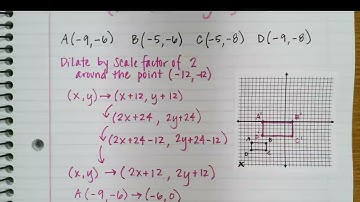 A(-9,-6) B(-5,-6) C(-5,-8) D(-9,-8)
Dilate by scale factor of 2
around the point (-12,-12)
(x,y) → (x+12, y+12)
(2x+24, 2y+24)
(2x+24-12, 2y+24-12)
(x,y) → (2x+12, 2y+12)
A(-9,-6) → (-6,0)
A' B'
C'
A B
D C